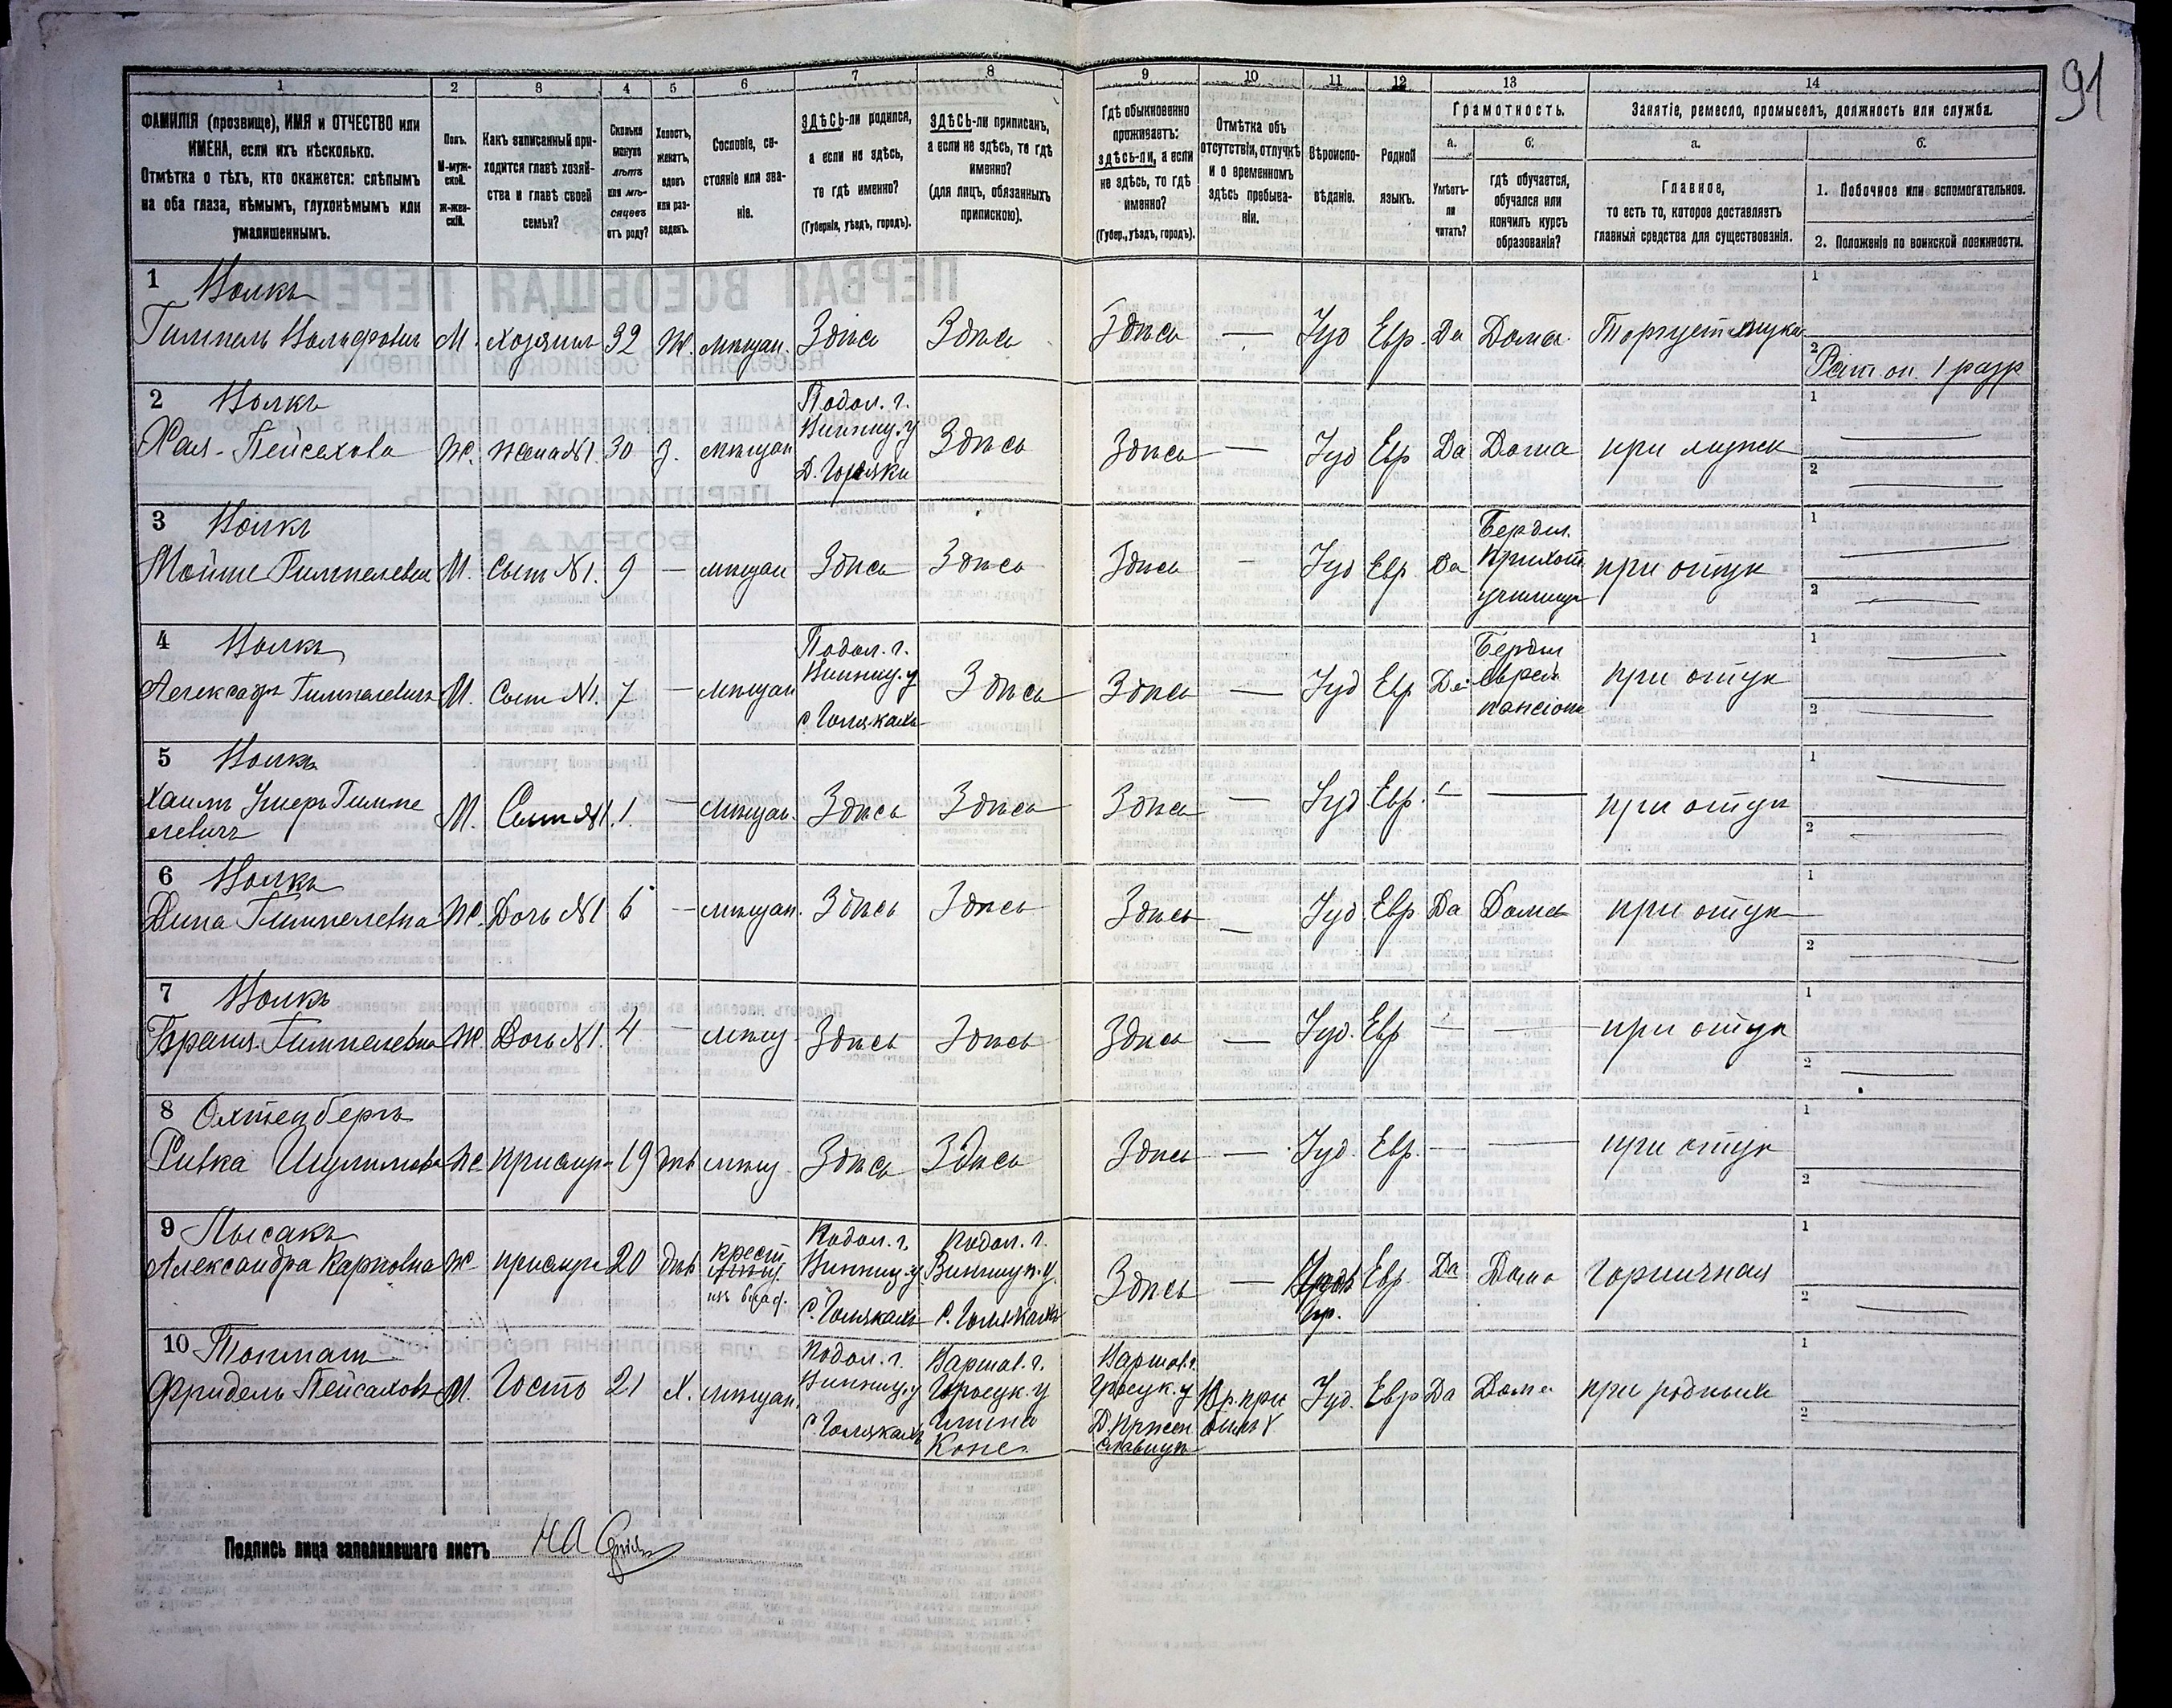 91
1 2 3 4 5 6 7 8 9 10 11 12 13 14
ФАМИЛІЯ (прозвище), ИМЯ и ОТЧЕСТВО или
ИМЕНА, если ихъ нѣсколько.
Отмѣтка о тѣхъ, кто окажется: слѣпымъ
на оба глаза, нѣмымъ, глухонѣмымъ или
умалишеннымъ.
Полъ.
М-муж-
ской.
Ж-жен-
скій.
Какъ записанный при-
ходится главѣ хозяй-
ства и главѣ своей
семьи?
Сколько
минуло
лѣтъ
или мѣ-
сяцевъ
отъ роду?
Холостъ,
женатъ,
вдовъ
или раз-
веденъ.
Сословіе, со-
стояніе или зва-
ніе.
ЗДѢСЬ-ли родился,
а если не здѣсь,
то гдѣ именно?
(Губернія, уѣздъ, городъ).
ЗДѢСЬ-ли приписанъ,
а если не здѣсь, то гдѣ
именно?
(для лицъ, обязанныхъ
припискою).
Гдѣ обыкновенно
проживаетъ:
здѣсь-ли, а если
не здѣсь, то гдѣ
именно?
(Губер., уѣздъ, городъ).
Отмѣтка объ
отсутствіи, отлучкѣ
и о временномъ
здѣсь пребыва-
ніи.
Вѣроиспо-
вѣданіе.
Родной
языкъ.
Грамотность.
а.
Умѣетъ-
ли
читать?
б.
гдѣ обучается,
обучался или
кончилъ курсъ
образованія?
Занятіе, ремесло, промыселъ, должность или служба.
а.
Главное,
то есть то, которое доставляетъ
главныя средства для существованія.
б.
1. Побочное или вспомогательное.
2. Положеніе по воинской повинности.
1 Волкъ
Гимпель Вольфовичъ М. хозяинъ 32 Ж. мѣщан. Здѣсь Здѣсь Здѣсь — Іуд Евр. Да Дома Торгуетъ мукой
1
2 Рат. оп. 1 разр
2 Волкъ
Хая-Пейсахова Ж. жена №1. 30 З. мѣщан
Подол. г.
Винниц. у
Д.
Здѣсь Здѣсь — Іуд Евр Да Дома при мужѣ
1
2
3 Волкъ
Мойше Гимпелевичъ М. Сынъ №1. 9 — мѣщан Здѣсь Здѣсь Здѣсь — Іуд Евр. Да
Бердич.
Приход.
училище
при отцѣ
1
2
4 Волкъ
Александр Гимпелевичъ М. Сынъ №1. 7 — мѣщан
Подол. г.
Винниц. у
с. Голякахъ
Здѣсь Здѣсь — Іуд Евр Да
Бердич
Еврей.
пансіонъ
при отцѣ
1
2
5 Волкъ
Хаимъ Ушеръ Гимпе
левичъ
М. Сынъ №1. 1 — мѣщан. Здѣсь Здѣсь Здѣсь — Іуд Евр. — — при отцѣ
1
2
6 Волкъ
Дина Гимпелевна Ж. Дочь №1 6 — мѣщан. Здѣсь Здѣсь Здѣсь — Іуд. Евр Да Дома при отцѣ
1
2
7 Волкъ
Гимпелевна Ж. Дочь №1. 4 — мѣщ. Здѣсь Здѣсь Здѣсь — Іуд. Евр — — при отцѣ
1
2
8 Охтенбергъ
Ривка Шулимова Ж прислуг 19 дѣв мѣщ. Здѣсь Здѣсь Здѣсь — Іуд. Евр. — — при отцѣ
1
2
9 Лысакъ
Александра Карповна Ж прислуг 20 дѣв
крест
изъ влад.
Подол. г.
Винниц. у
с. Голякахъ
Подол. г.
Винницк. у.
с. Голякахъ
Здѣсь — Евр Да Дома Горничная
1
2
10
Фридель Пейсаховъ М. Гость 21 Х. мѣщан.
Подол. г.
Винниц. у
с. Голякахъ
Варшав. г.
Гроецк. у
Гмина
Коне
Варшав. г.
Гроецк. у
Д.
Вр. при
Іуд. Евр Да Дома при родныхъ
1
2
Подпись лица заполнявшаго листъ